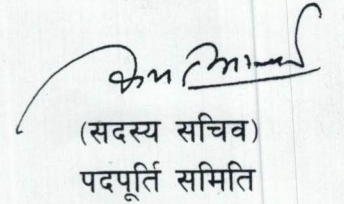 (सदस्य सचिव)
पदपूर्ति समिति